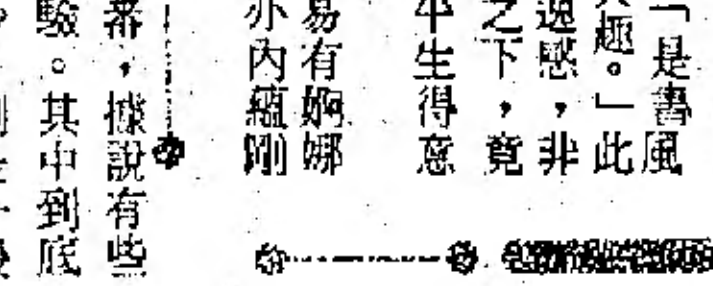 「是書風
趣。」此
逸感，非
之下，竟
半生得意
易有婀娜
亦內蘊剛
審，據說有些
驗。其中到底